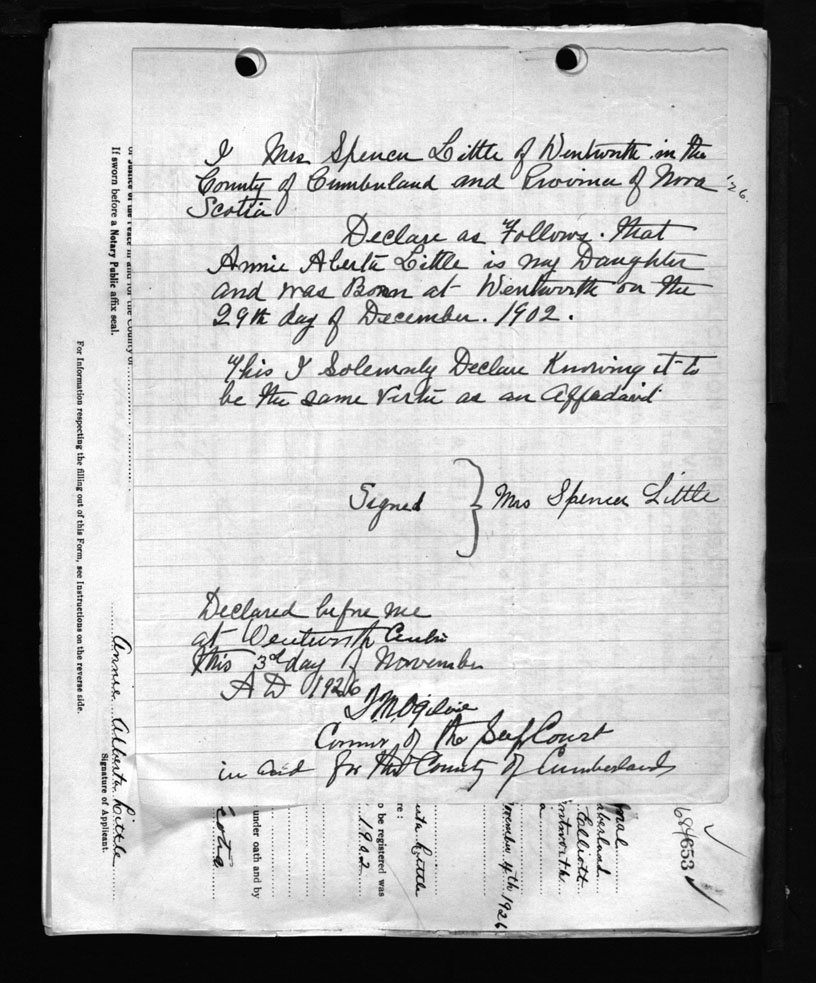 I Mrs Spencer Little of Wentworth in the
County of Cumberland and Province of Nova
Scotia
'26.
Declare as Follows. That
Annie Alberta Little is my Daughter
and was Born at Wentworth on the
29th day of December. 1902.
This I Solemnly Declare Knowing it to
be the same Virtue as an Affadavid
Signed } Mrs Spencer Little
Declared before me
at Wentworth
this 3rd day of November
A D 1926
Ogilvie
Commr of the Sup Court
in and for the County of Cumberland
or Justice of the Peace in and for the County of
If sworn before a Notary Public affix seal.
For Information respecting the filling out of this Form, see Instructions on the reverse side.
Annie Alberta Little
Signature of Applicant.
Scotia
under oath and by
1902
o be registered was
re:
Little
November 4th 1926
entworth
Elliott
berland
684653